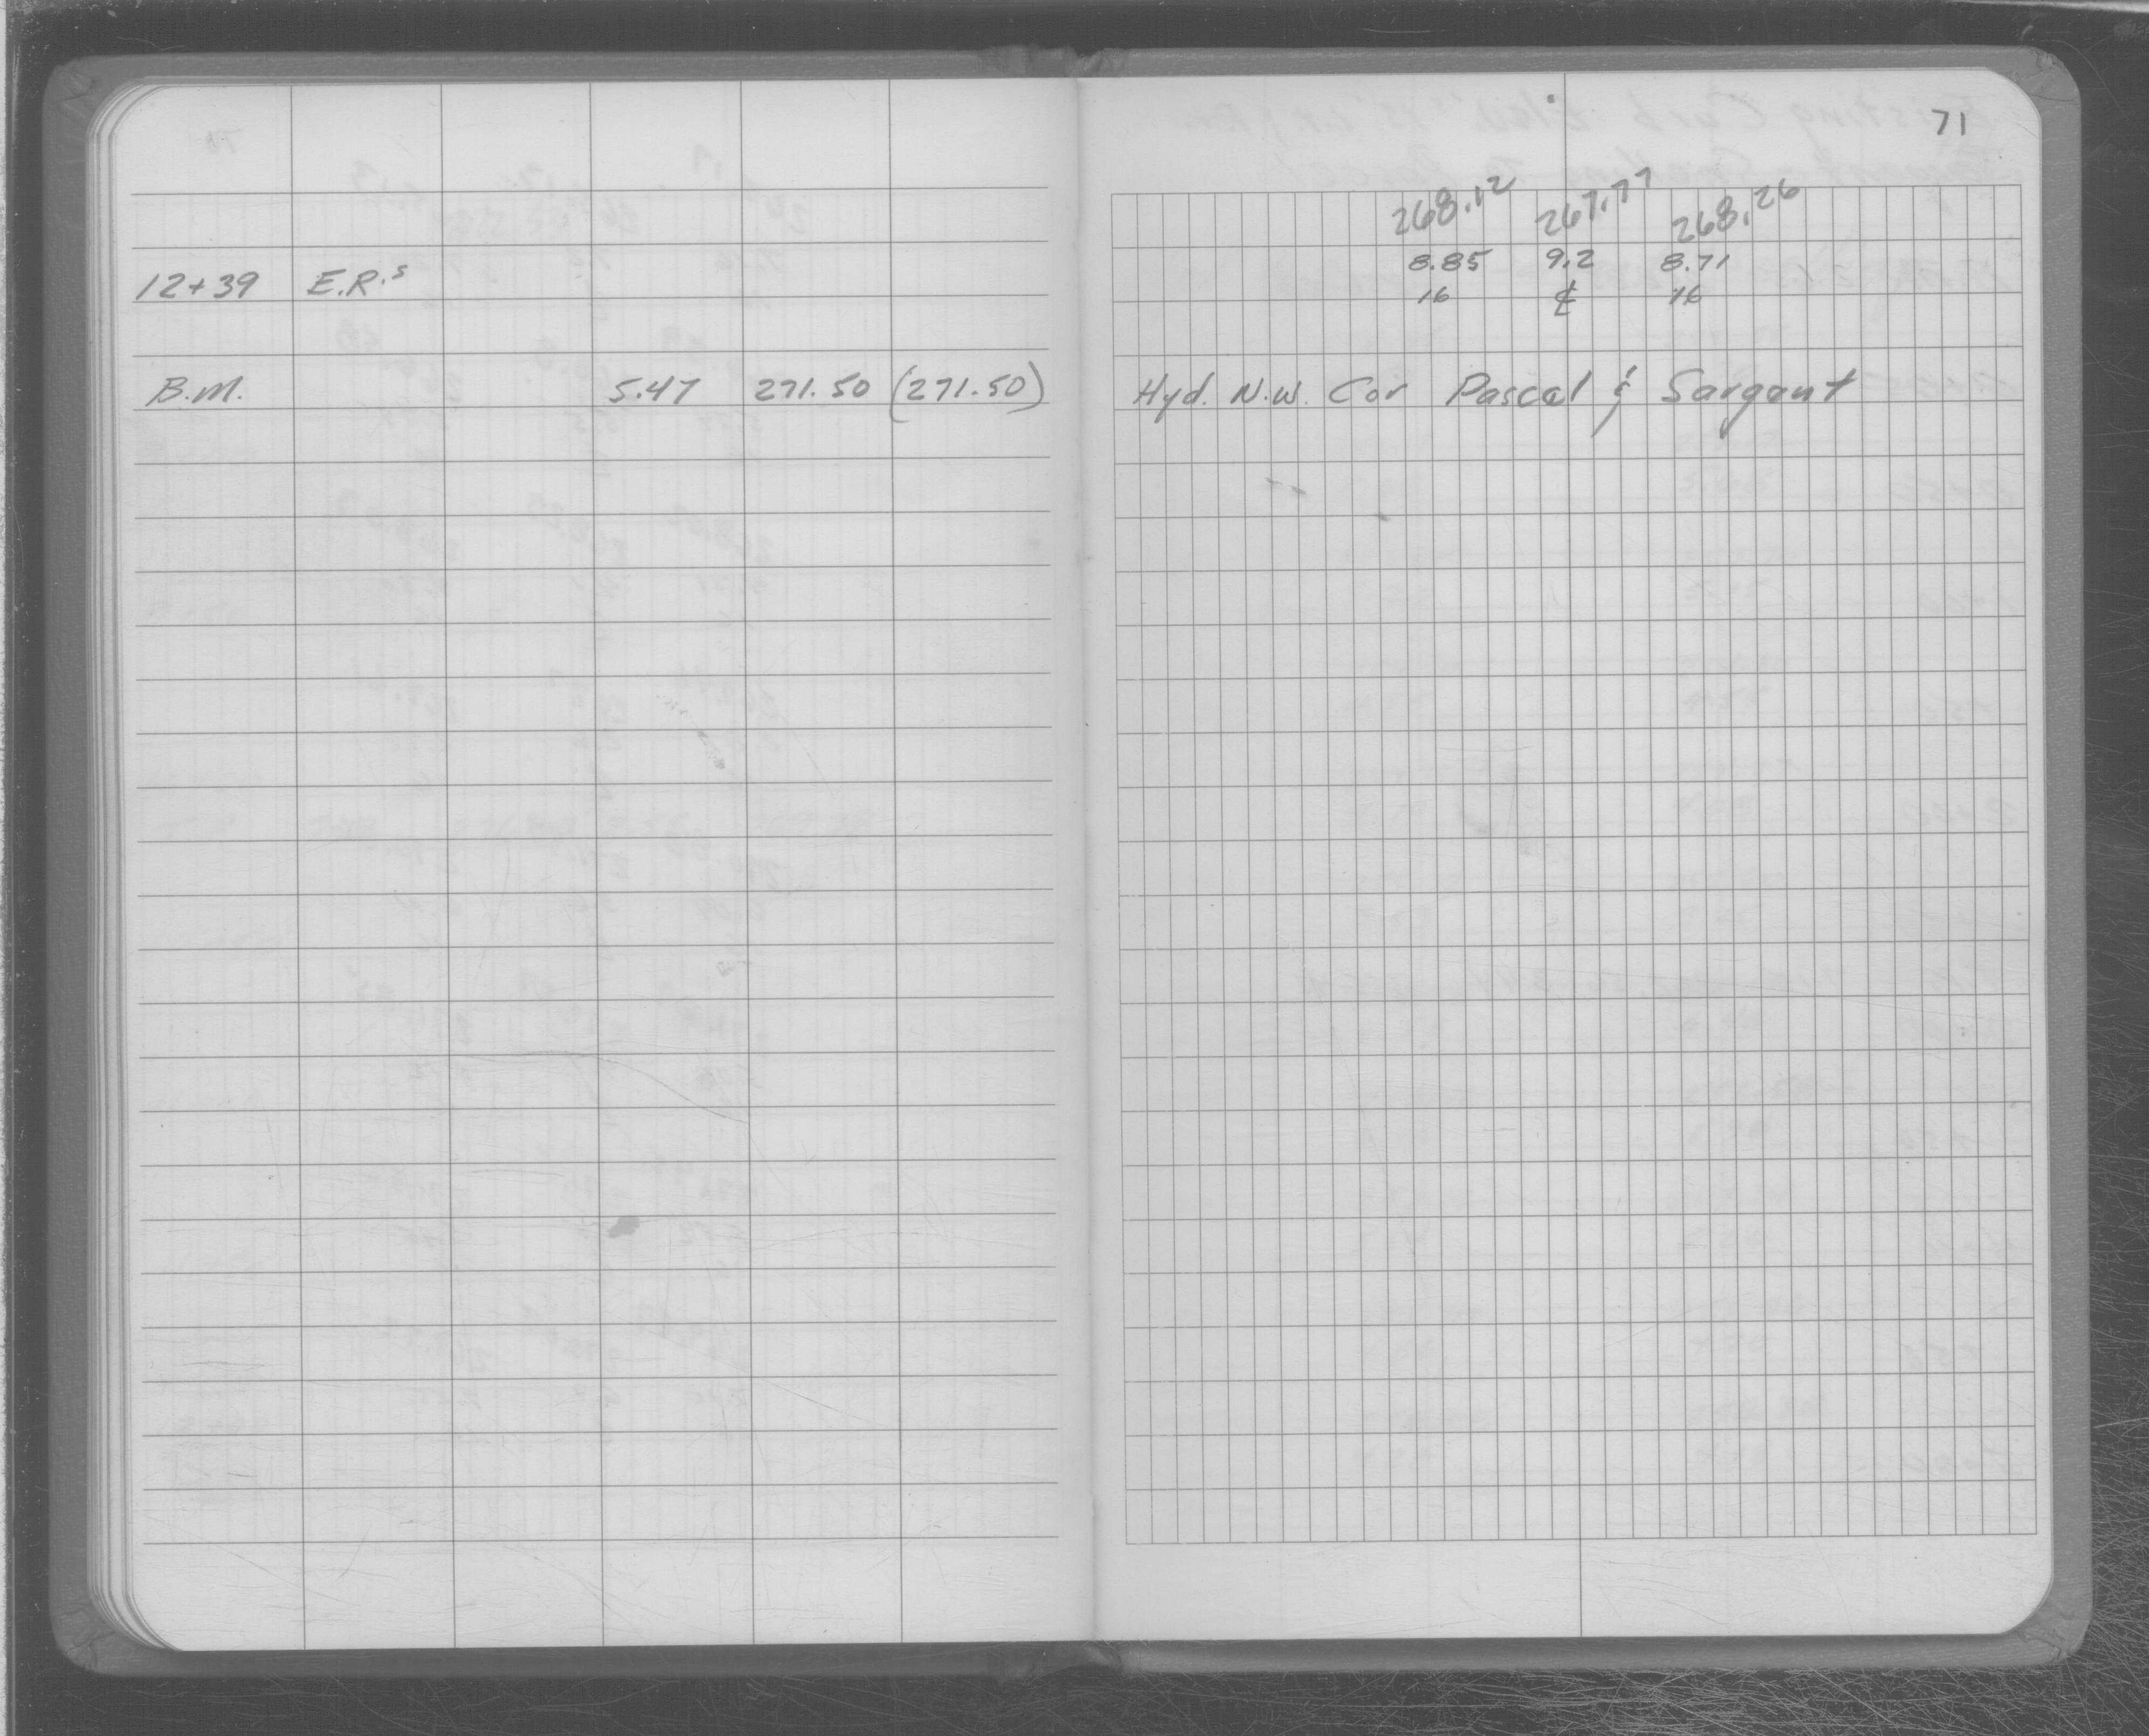 71
268.12 267.77 268.26
12+39 E.R.s 8.85 9.2 8.71
16 ℄ 16
B.M. 5.47 271.50 (271.50) Hyd. N.W. Cor Pascal & Sargant